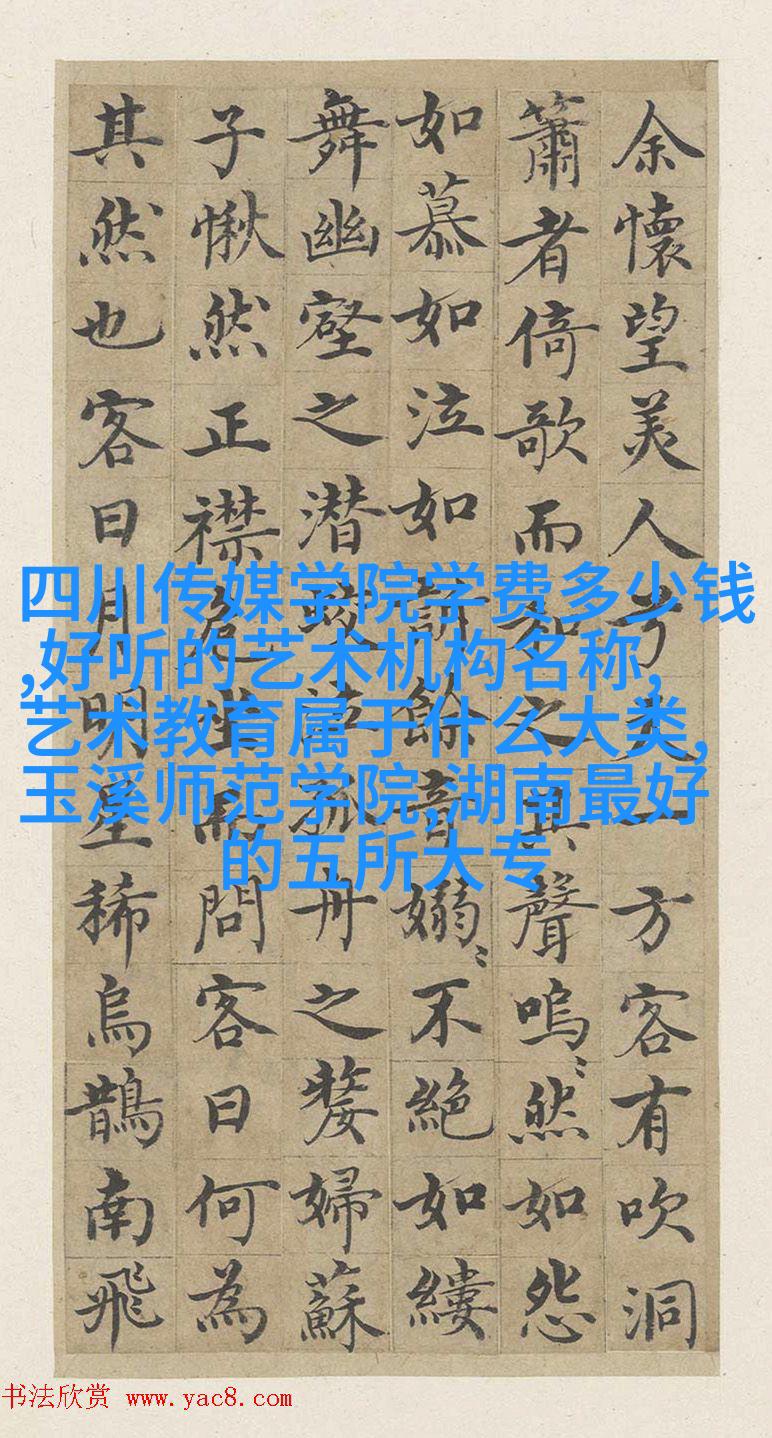 余懷望美人兮天一方客有吹洞
簫者倚歌而和之其聲嗚〻然如怨
如慕如泣如訴餘音嫋〻不絕如縷
舞幽壑之潛蛟泣孤舟之嫠婦蘇
子愀然正襟危坐而問客曰何為
其然也客曰月明星稀烏鵲南飛
四川传媒学院学费多少钱
,好听的艺术机构名称,
艺术教育属于什么大类,
玉溪师范学院,湖南最好
的五所大专
书法欣赏 www.yac8.com